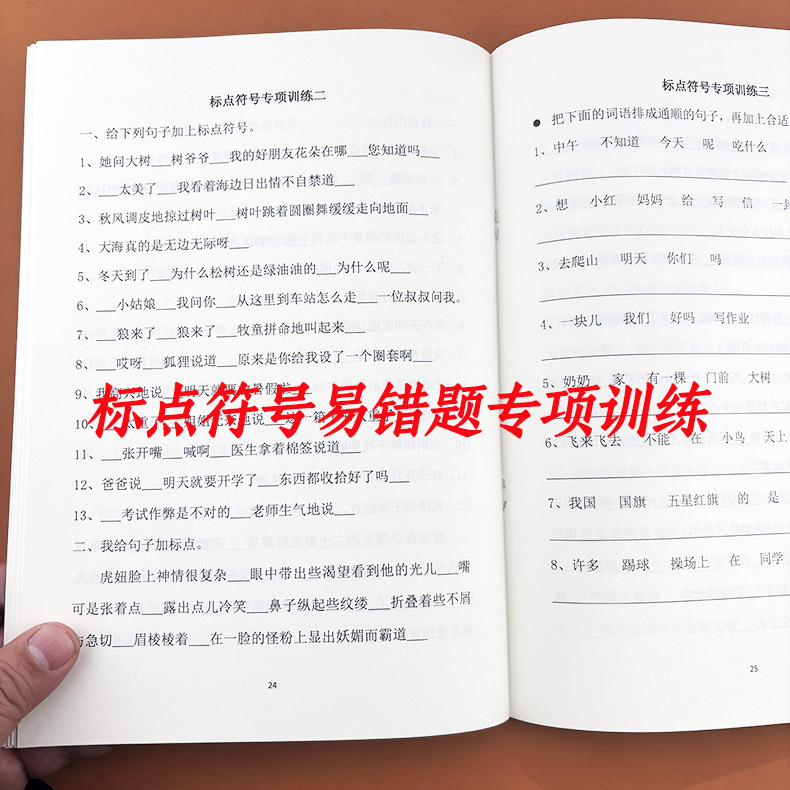 标点符号专项训练二
一、给下列句子加上标点符号。
1、她问大树___树爷爷___我的好朋友花朵在哪___您知道吗___
2、___太美了___我看着海边日出情不自禁道___
3、秋风调皮地掠过树叶___树叶跳着圆圈舞缓缓走向地面___
4、大海真的是无边无际呀___
5、冬天到了___为什么松树还是绿油油的___为什么呢___
6、___小姑娘___我问你___从这里到车站怎么走___一位叔叔问我。
7、___狼来了___狼来了___牧童拼命地叫起来___
8、___哎呀___狐狸说道___原来是你给我设了一个圈套啊___
9、我高兴地说___明天就要
10、
11、___张开嘴___喊啊___医生拿着棉签说道___
12、爸爸说___明天就要开学了___东西都收拾好了吗___
13、___考试作弊是不对的___老师生气地说___
二、我给句子加标点。
虎妞脸上神情很复杂___眼中带出些渴望看到他的光儿___嘴
可是张着点___露出点儿冷笑___鼻子纵起些纹缕___折叠着些不屑
与急切___眉棱棱着___在一脸的怪粉上显出妖媚而霸道___
24
标点符号专项训练三
● 把下面的词语排成通顺的句子，再加上合适
1、中午 不知道 今天 呢 吃什么
2、想 小红 妈妈 给 写 信 一封
3、去爬山 明天 你们 吗
4、一块儿 我们 好吗 写作业
5、奶奶 家 有一棵 门前 大树
6、飞来飞去 不能 在 小鸟 天上
7、我国 国旗 五星红旗 的 是
8、许多 踢球 操场上 在 同学
25
标点符号易错题专项训练